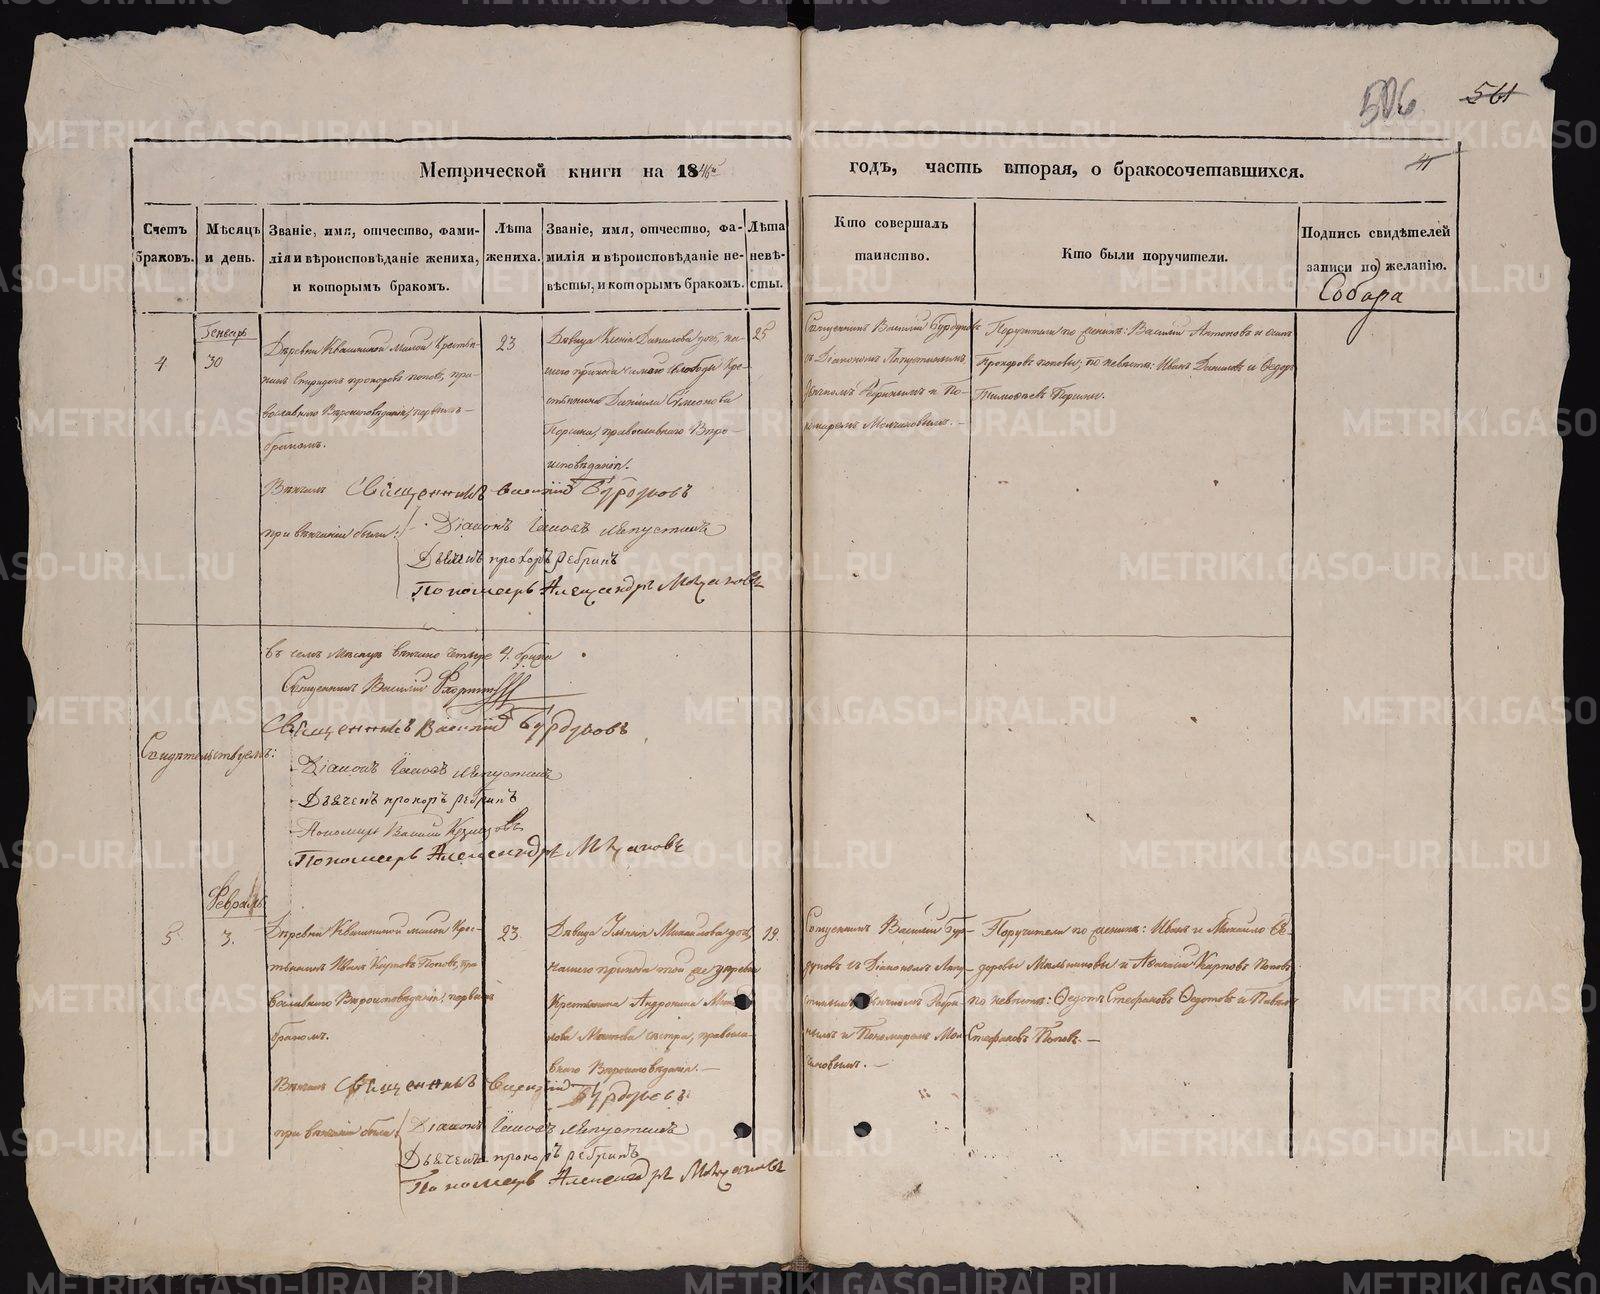 506
561
4
Метрической книги на 1846й
годъ, часть вторая, о бракосочетавшихся.
Счетъ браковъ.
Мѣсяцъ и день.
Званіе, имя, отчество, фами-
лія и вѣроисповѣданіе жениха,
и которымъ бракомъ.
Лѣта
жениха.
Званіе, имя, отчество, фа-
милія и вѣроисповѣданіе не-
вѣсты, и которымъ бракомъ.
Лѣта
невѣ-
сты.
Кто совершалъ
таинство.
Кто были поручители.
Подпись свидѣтелей
записи по желанію.
Собора
Генварь
4.
30
Деревни Квашниной малой Крестья-
нинъ Спиридонъ Прохоровъ Поповъ, пра-
вославнаго Вѣроисповѣданія, первымъ
бракомъ.
23
Дѣвица Ксенія Данилова дочь, на-
шего прихода
слободы Кре-
стьянина Даніила Симеонова
православнаго Вѣро-
исповѣданія.
25
Священникъ Василій Бурдуковъ
съ Діакономъ Лапустинымъ
Дьячкомъ Ребринымъ и По-
номаремъ Молчановымъ.
Поручители по женихѣ: Василій Антоновъ и
Прохоровъ Поповы, по невѣстѣ: Иванъ Даниловъ и Ѳедоръ
Тимоѳеевъ
Вѣнчалъ Священникъ Василій Бурдуковъ
при вѣнчаніи были: Діаконъ Іаковъ Лапустинъ
Дьячекъ Прохоръ Ребринъ
Пономарь Александръ Молчановъ
въ семъ Мѣсяцѣ вѣнчано четыре 4. брака
Священникъ Василій
Священникъ Василій Бурдуковъ
Свидѣтельствуемъ:
Діаконъ Іаковъ Лапустинъ
Дьячекъ Прохоръ Ребринъ
Пономарь Василій Кузнецовъ
Пономарь Александръ Молчановъ
Февраль
5.
3.
Деревни Квашниной малой Кре-
стьянинъ Иванъ Карповъ Поповъ, пра-
вославнаго Вѣроисповѣданія, первымъ
бракомъ.
23.
Дѣвица Михайлова дочь,
нашего прихода той же деревни
Крестьянина Андроника Михай-
лова сестра, правосла-
внаго Вѣроисповѣданія.
19.
Священникъ Василій Бур-
дуковъ съ Діакономъ Лапу-
стинымъ, Дьячкомъ Ребри-
нымъ и Пономаремъ Мол-
чановымъ.
Поручители по женихѣ: Иванъ и Михайло Ѳе-
доровы Мельниковы и Аѳанасій Карповъ Поповъ
по невѣстѣ: Ѳедотъ Стефановъ Ѳедотовъ и Павелъ
Стефановъ Поповъ.
Вѣнчалъ Священникъ Василій
Бурдуковъ
при вѣнчаніи были: Діаконъ Іаковъ Лапустинъ
Дьячекъ Прохоръ Ребринъ
Пономарь Александръ Молчановъ
METRIKI.GASO-URAL.RU